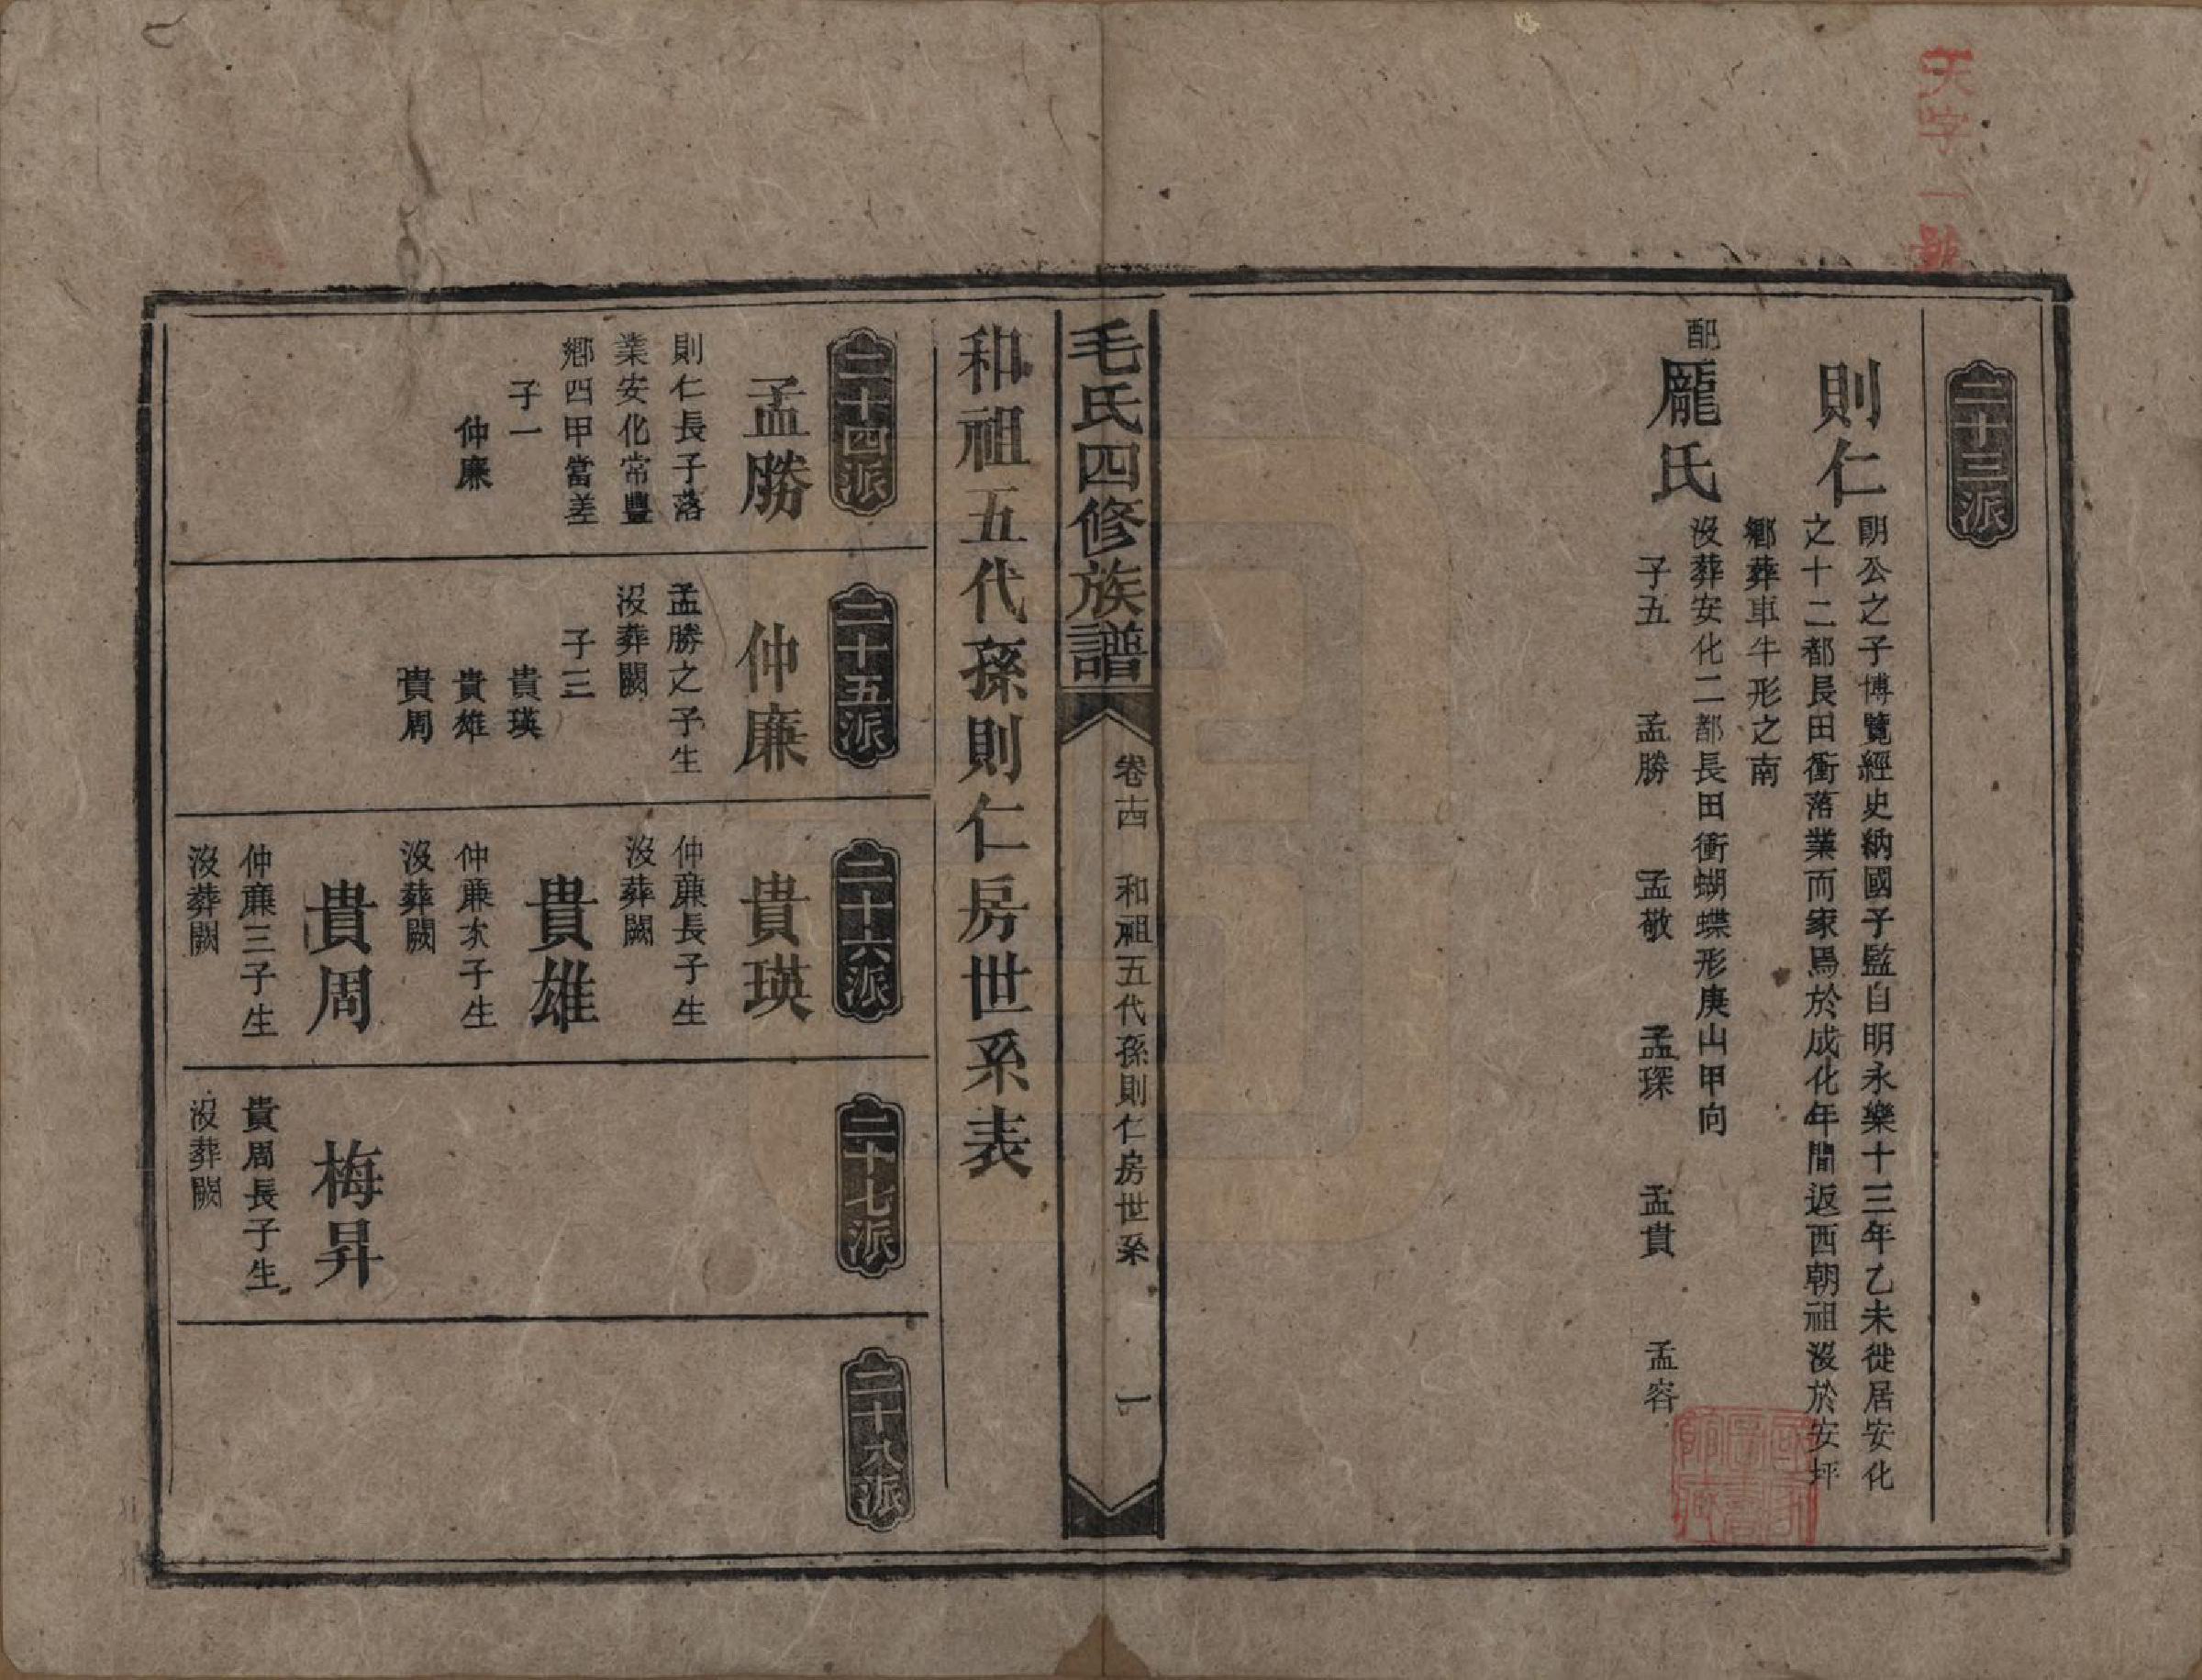 天字一號
二十三派
則仁
明公之子博覽經史納國子監自明永樂十三年乙未徙居安化
之十二都長田衝落業而家焉於成化年間返西朝祖沒於安坪
鄉葬車牛形之南
配龐氏
沒葬安化二都長田衝蝴蝶形庚山甲向
子五 孟勝 孟敬 孟琛 孟貴 孟容
毛氏四修族譜
卷十四 和祖五代孫則仁房世系
一
和祖五代孫則仁房世系表
二十四派
孟勝
則仁長子落
業安化常豐
鄉四甲當差
子一
仲廉
二十五派
仲廉
孟勝之子生
沒葬闕
子三
貴瑛
貴雄
貴周
二十六派
貴瑛
仲廉長子生
沒葬闕
貴雄
仲廉次子生
沒葬闕
貴周
仲廉三子生
沒葬闕
二十七派
梅昇
貴周長子生
沒葬闕
二十八派